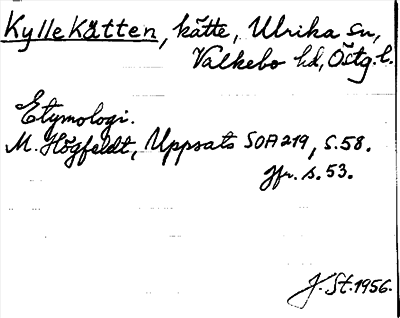 Kyllekätten, kätte, Ulrika sn,
Valkebo hd, Östg. l.
Etymologi.
M. Högfeldt, Uppsats SOA 219, s. 58.
Jfr. s. 53.
J. St. 1956.